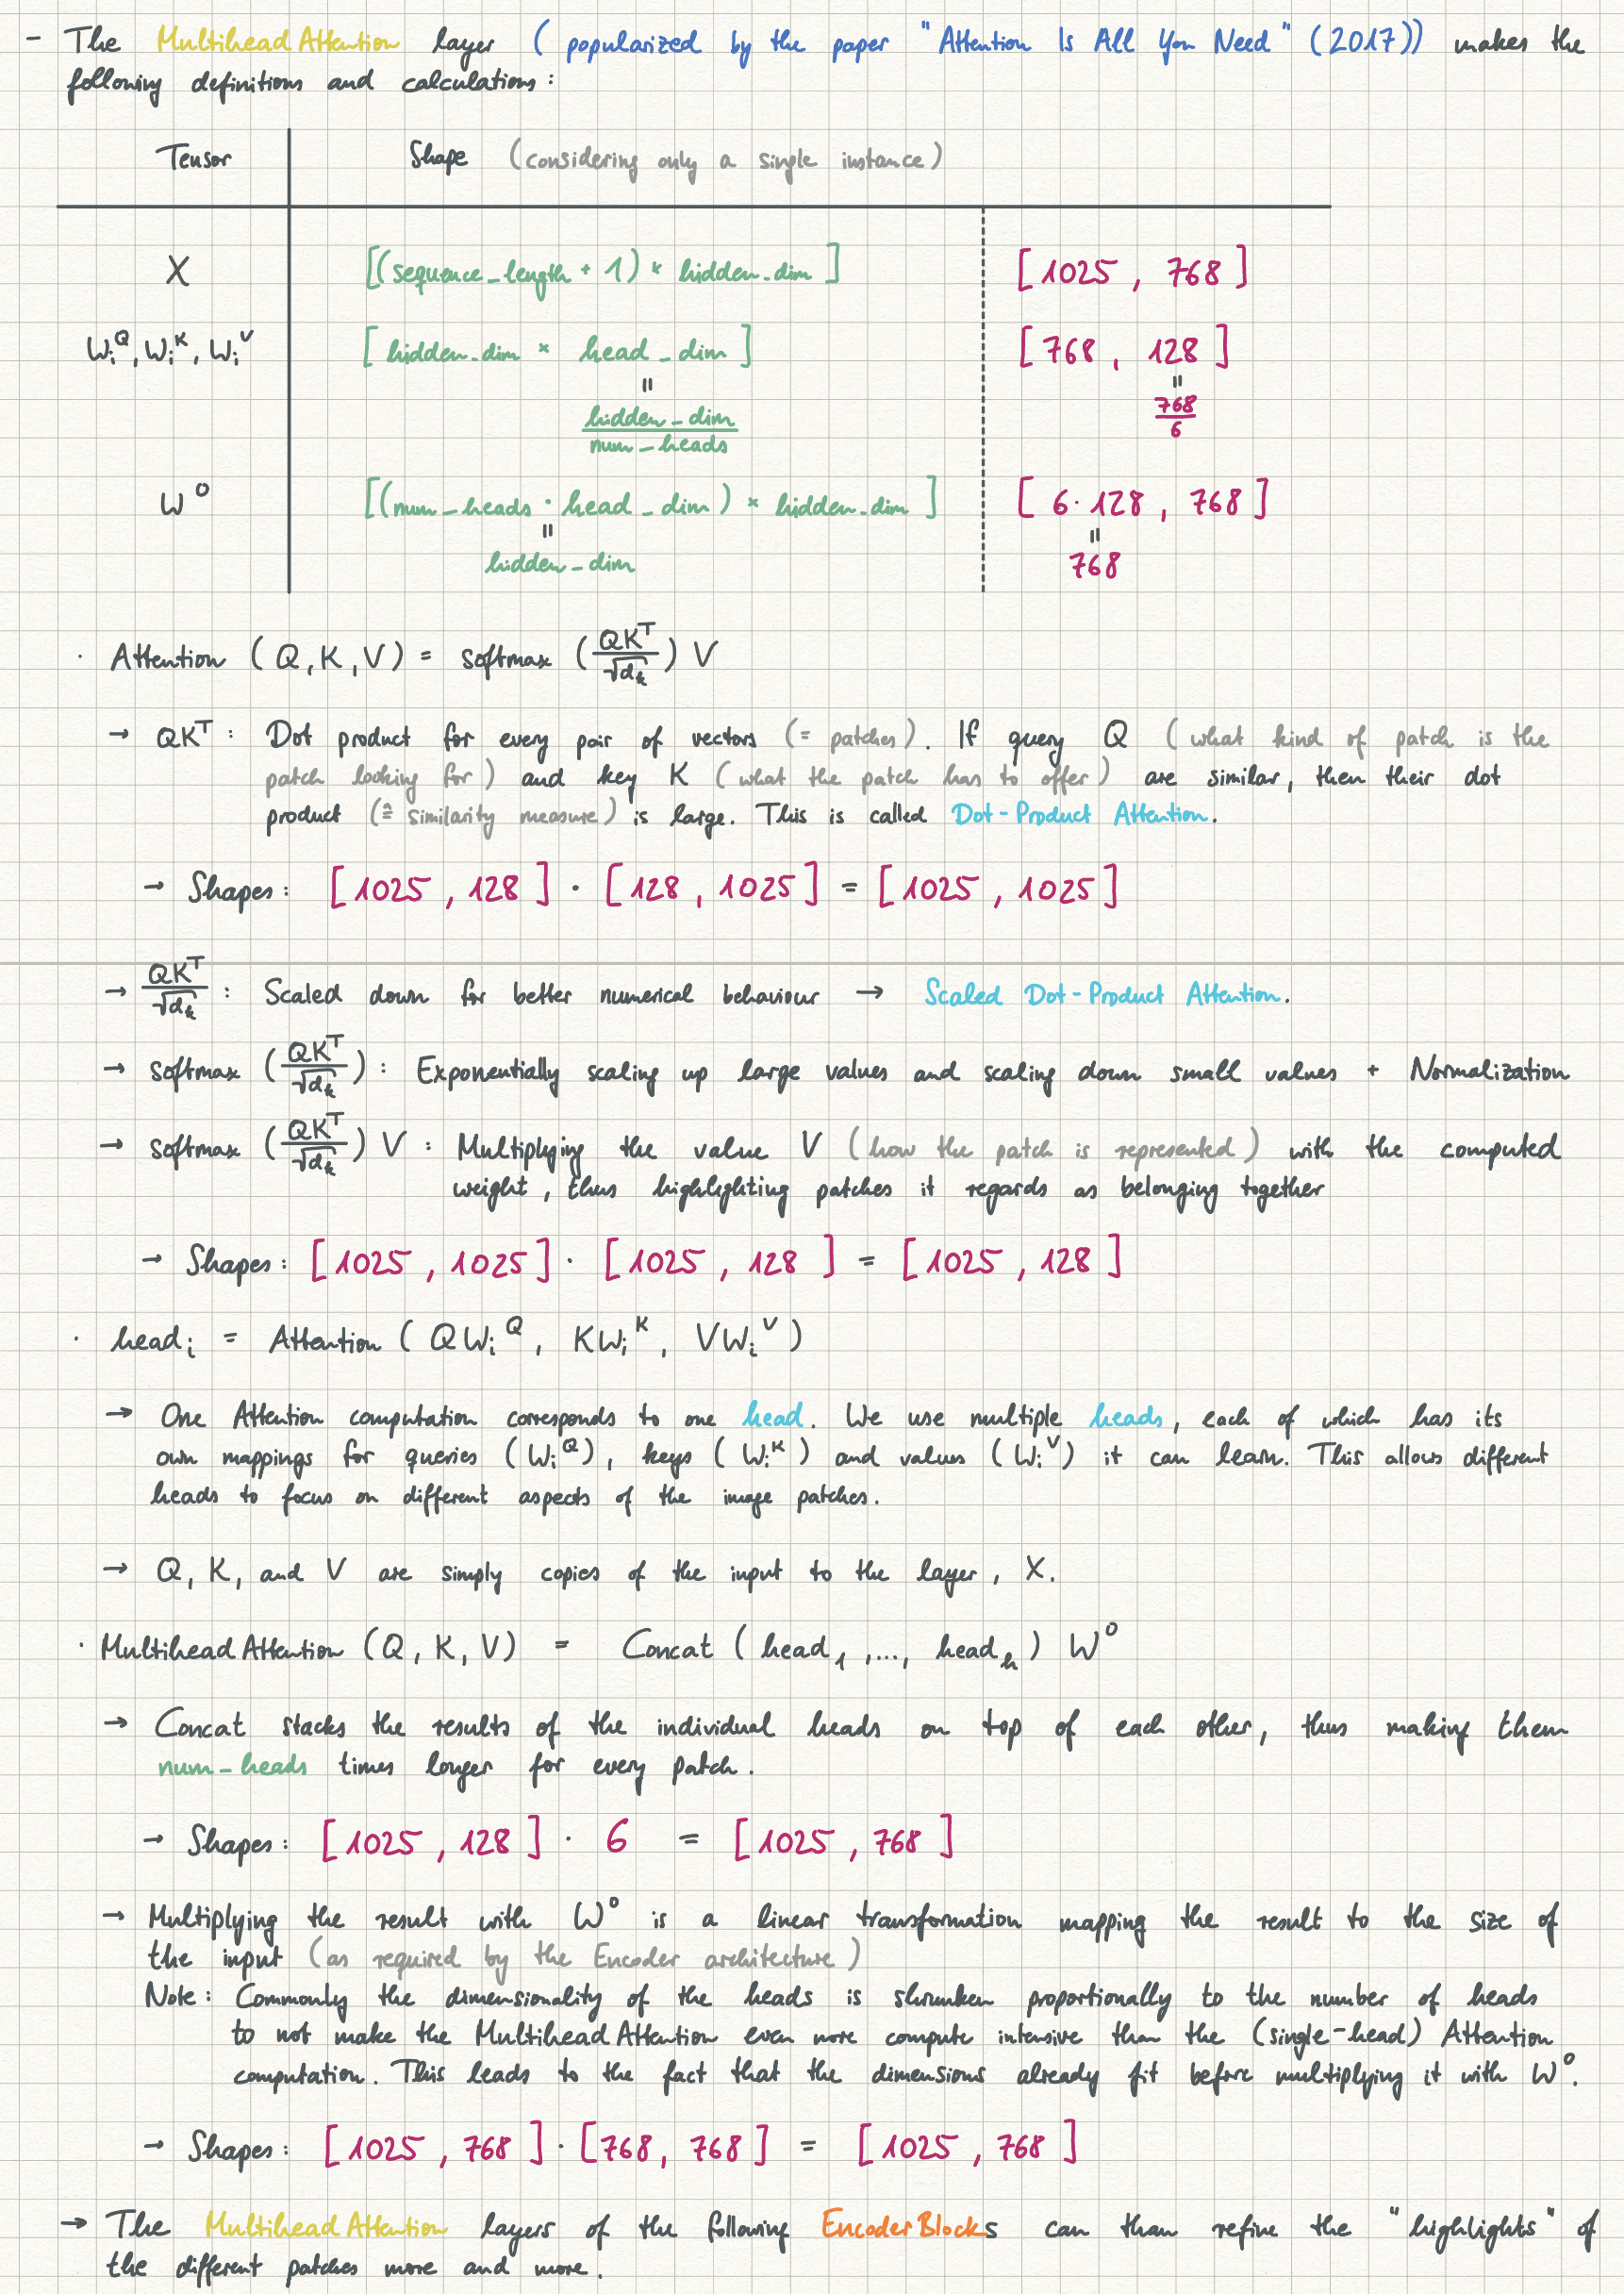 - The Multihead Attention layer (popularized by the paper "Attention Is All You Need" (2017)) makes the
following definitions and calculations:
Tensor Shape (considering only a single instance)
X [(sequence_length + 1) × hidden_dim] [1025, 768]
W_i^Q, W_i^K, W_i^V [hidden_dim × head_dim] [768, 128]
= =
hidden_dim / num_heads 768/6
W^O [(num_heads · head_dim) × hidden_dim] [6·128, 768]
= =
hidden_dim 768
· Attention (Q, K, V) = softmax (QK^T / √d_k) V
→ QK^T: Dot product for every pair of vectors (= patches). If query Q (what kind of patch is the
patch looking for) and key K (what the patch has to offer) are similar, then their dot
product (≙ similarity measure) is large. This is called Dot-Product Attention.
→ Shapes: [1025, 128] · [128, 1025] = [1025, 1025]
→ QK^T / √d_k: Scaled down for better numerical behaviour → Scaled Dot-Product Attention.
→ softmax (QK^T / √d_k): Exponentially scaling up large values and scaling down small values + Normalization
→ softmax (QK^T / √d_k) V: Multiplying the value V (how the patch is represented) with the computed
weight, thus highlighting patches it regards as belonging together
→ Shapes: [1025, 1025] · [1025, 128] = [1025, 128]
· head_i = Attention (QW_i^Q, KW_i^K, VW_i^V)
→ One Attention computation corresponds to one head. We use multiple heads, each of which has its
own mappings for queries (W_i^Q), keys (W_i^K) and values (W_i^V) it can learn. This allows different
heads to focus on different aspects of the image patches.
→ Q, K, and V are simply copies of the input to the layer, X.
· Multihead Attention (Q, K, V) = Concat (head_1, ..., head_h) W^O
→ Concat stacks the results of the individual heads on top of each other, thus making them
num_heads times longer for every patch.
→ Shapes: [1025, 128] · 6 = [1025, 768]
→ Multiplying the result with W^O is a linear transformation mapping the result to the size of
the input (as required by the Encoder architecture)
Note: Commonly the dimensionality of the heads is shrunken proportionally to the number of heads
to not make the Multihead Attention even more compute intensive than the (single-head) Attention
computation. This leads to the fact that the dimensions already fit before multiplying it with W^O.
→ Shapes: [1025, 768] · [768, 768] = [1025, 768]
→ The Multihead Attention layers of the following Encoder Blocks can than refine the "highlights" of
the different patches more and more.